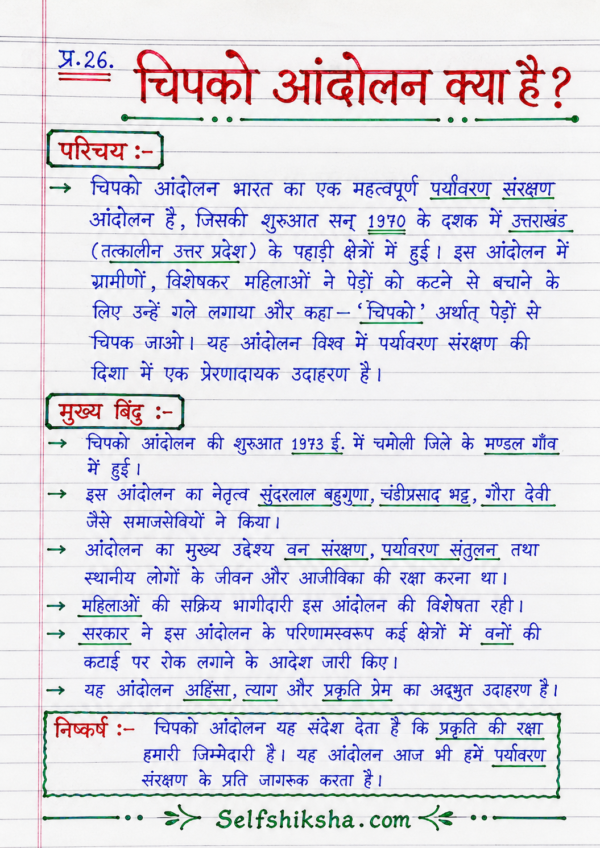 प्र.26.
चिपको आंदोलन क्या है?
परिचय :-
→ चिपको आंदोलन भारत का एक महत्वपूर्ण पर्यावरण संरक्षण
आंदोलन है, जिसकी शुरुआत सन् 1970 के दशक में उत्तराखंड
(तत्कालीन उत्तर प्रदेश) के पहाड़ी क्षेत्रों में हुई। इस आंदोलन में
ग्रामीणों, विशेषकर महिलाओं ने पेड़ों को कटने से बचाने के
लिए उन्हें गले लगाया और कहा – ‘चिपको’ अर्थात् पेड़ों से
चिपक जाओ। यह आंदोलन विश्व में पर्यावरण संरक्षण की
दिशा में एक प्रेरणादायक उदाहरण है।
मुख्य बिंदु :-
→ चिपको आंदोलन की शुरुआत 1973 ई. में चमोली जिले के मण्डल गाँव
में हुई।
→ इस आंदोलन का नेतृत्व सुंदरलाल बहुगुणा, चंडीप्रसाद भट्ट, गौरा देवी
जैसे समाजसेवियों ने किया।
→ आंदोलन का मुख्य उद्देश्य वन संरक्षण, पर्यावरण संतुलन तथा
स्थानीय लोगों के जीवन और आजीविका की रक्षा करना था।
→ महिलाओं की सक्रिय भागीदारी इस आंदोलन की विशेषता रही।
→ सरकार ने इस आंदोलन के परिणामस्वरूप कई क्षेत्रों में वनों की
कटाई पर रोक लगाने के आदेश जारी किए।
→ यह आंदोलन अहिंसा, त्याग और प्रकृति प्रेम का अद्भुत उदाहरण है।
निष्कर्ष :- चिपको आंदोलन यह संदेश देता है कि प्रकृति की रक्षा
हमारी जिम्मेदारी है। यह आंदोलन आज भी हमें पर्यावरण
संरक्षण के प्रति जागरूक करता है।
Selfshiksha.com